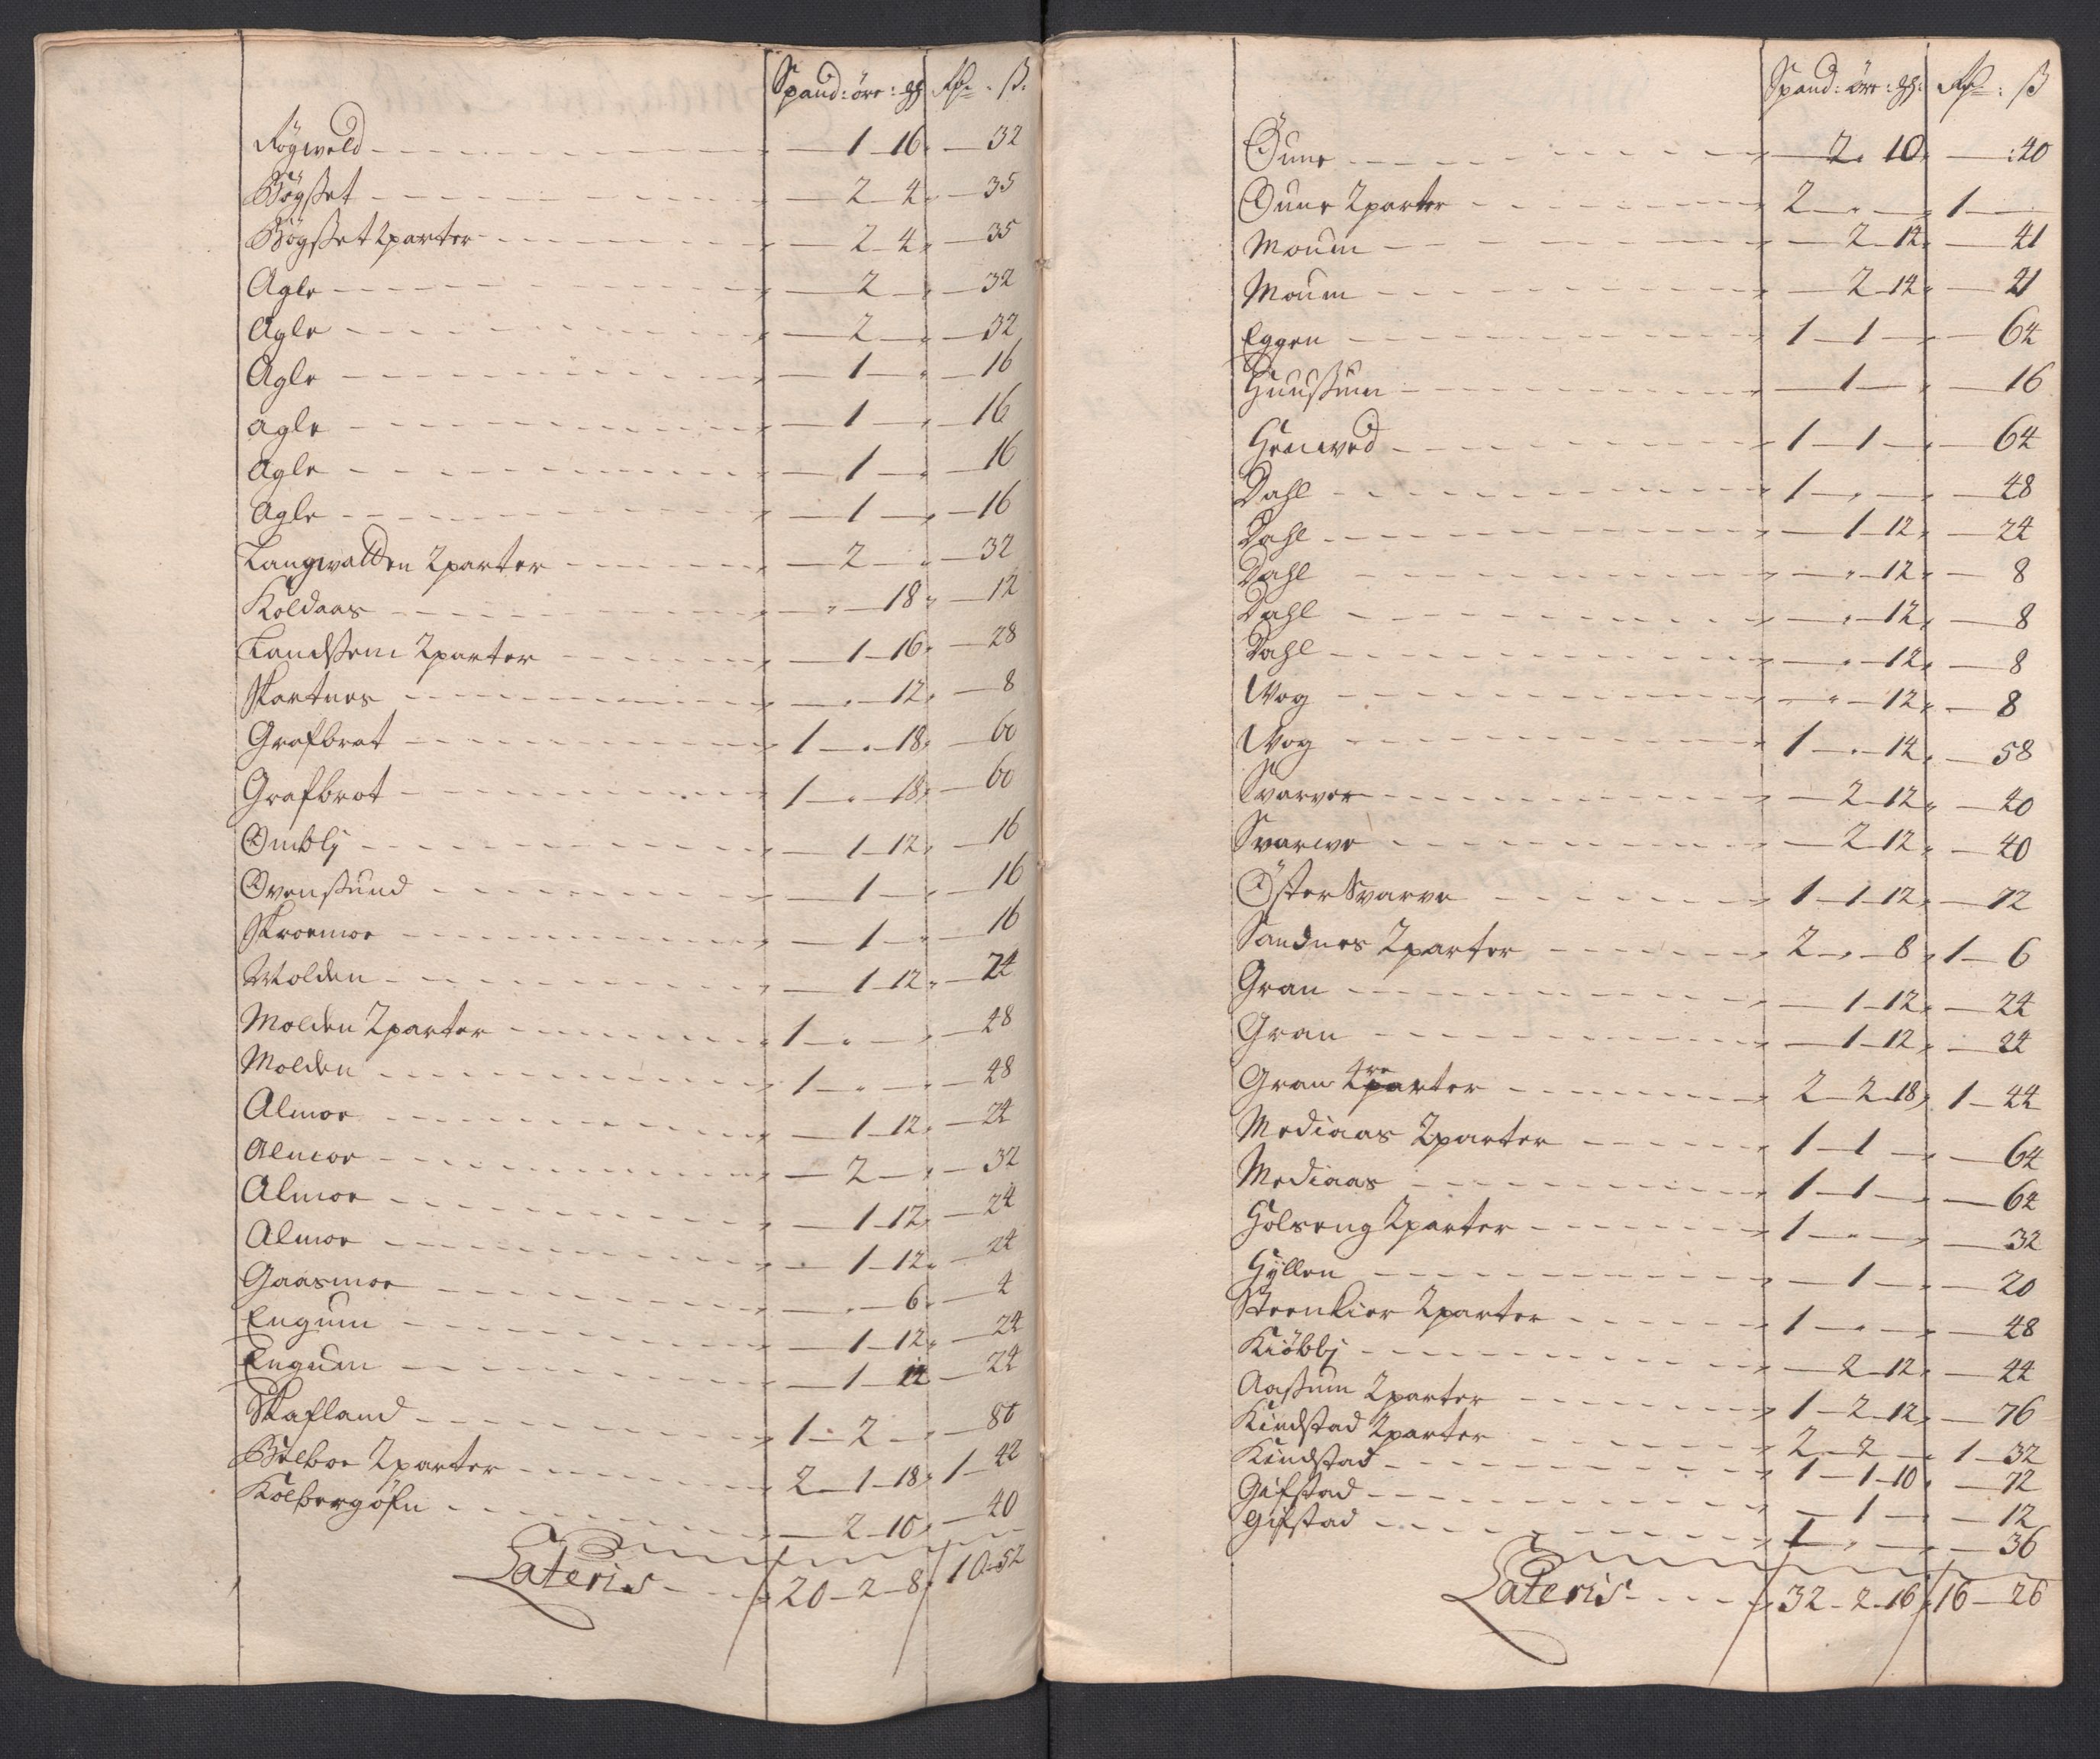 Spand: öre: ₰ Rd: ß:
Rögweld — 1 16 — 32
Bögßet — 2 4 — 35
Bögßet 2parter — 2 4 — 35
Agle — 2 — 32
Agle — 2 — 32
Agle — 1 — 16
Agle — 1 — 16
Agle — 1 — 16
Agle — 1 — 16
Langwalden 2parter — 2 — 32
Koldaas — 18 — 12
Landßem 2parter — 1 16 — 28
Skartnes — 12 — 8
Grafbrot 1 — 18 — 60
Grafbrot 1 — 18 — 60
Ombly — 1 12 — 16
Ovenßund — 1 — 16
Skroemoe — 1 — 16
Molden — 1 12 — 24
Molden 2parter 1 — 48
Molden 1 — 48
Almoe — 1 12 — 24
Almoe — 2 — 32
Almoe — 1 12 — 24
Almoe — 1 12 — 24
Gaasmoe — 6 — 4
Engum — 1 12 — 24
Engum — 1 12 — 24
Skafland 1 — 2 — 80
Belboe 2parter 2 — 1 18 1 — 42
Kolbergöfn — 2 10 — 40
Lateris 20 — 2 — 8 10 — 52
Spand: öre: ₰: Rd: ß
Öune — 2 10 — 40
Oune 2parter 2 — 1 —
Moum — 2 14 — 41
Moum — 2 14 — 41
Eggen 1 — 1 — 64
Huußum — 1 — 16
Henwed 1 — 1 — 64
Dahl 1 — 48
Dahl — 1 12 — 24
Dahl — 12 — 8
Dahl — 12 — 8
Dahl — 12 — 8
Wog — 12 — 8
Wog 1 — 14 — 58
Svarver — 2 12 — 40
Svarwe — 2 12 — 40
Öster Svarve 1 — 1 12 — 72
Sandnes 2parter 2 — 8 1 — 6
Gran — 1 12 — 24
Gran — 1 12 — 24
Gran 4re parter 2 — 2 18 1 — 44
Mediaas 2parter 1 — 1 — 64
Mediaas 1 — 1 — 64
Holseng 2parter 1 — 32
Hyllen — 1 — 20
Steenkier 2parter 1 — 48
Kiöbbj — 2 12 — 44
Aaßum 2parter 1 — 2 12 — 76
Kindstad 2parter 2 — 2 — 1 — 32
Kindstad 1 — 1 10 — 72
Gifstad — 1 — 12
Gifstad 1 — 36
Lateris 32 — 2 16 16 — 26